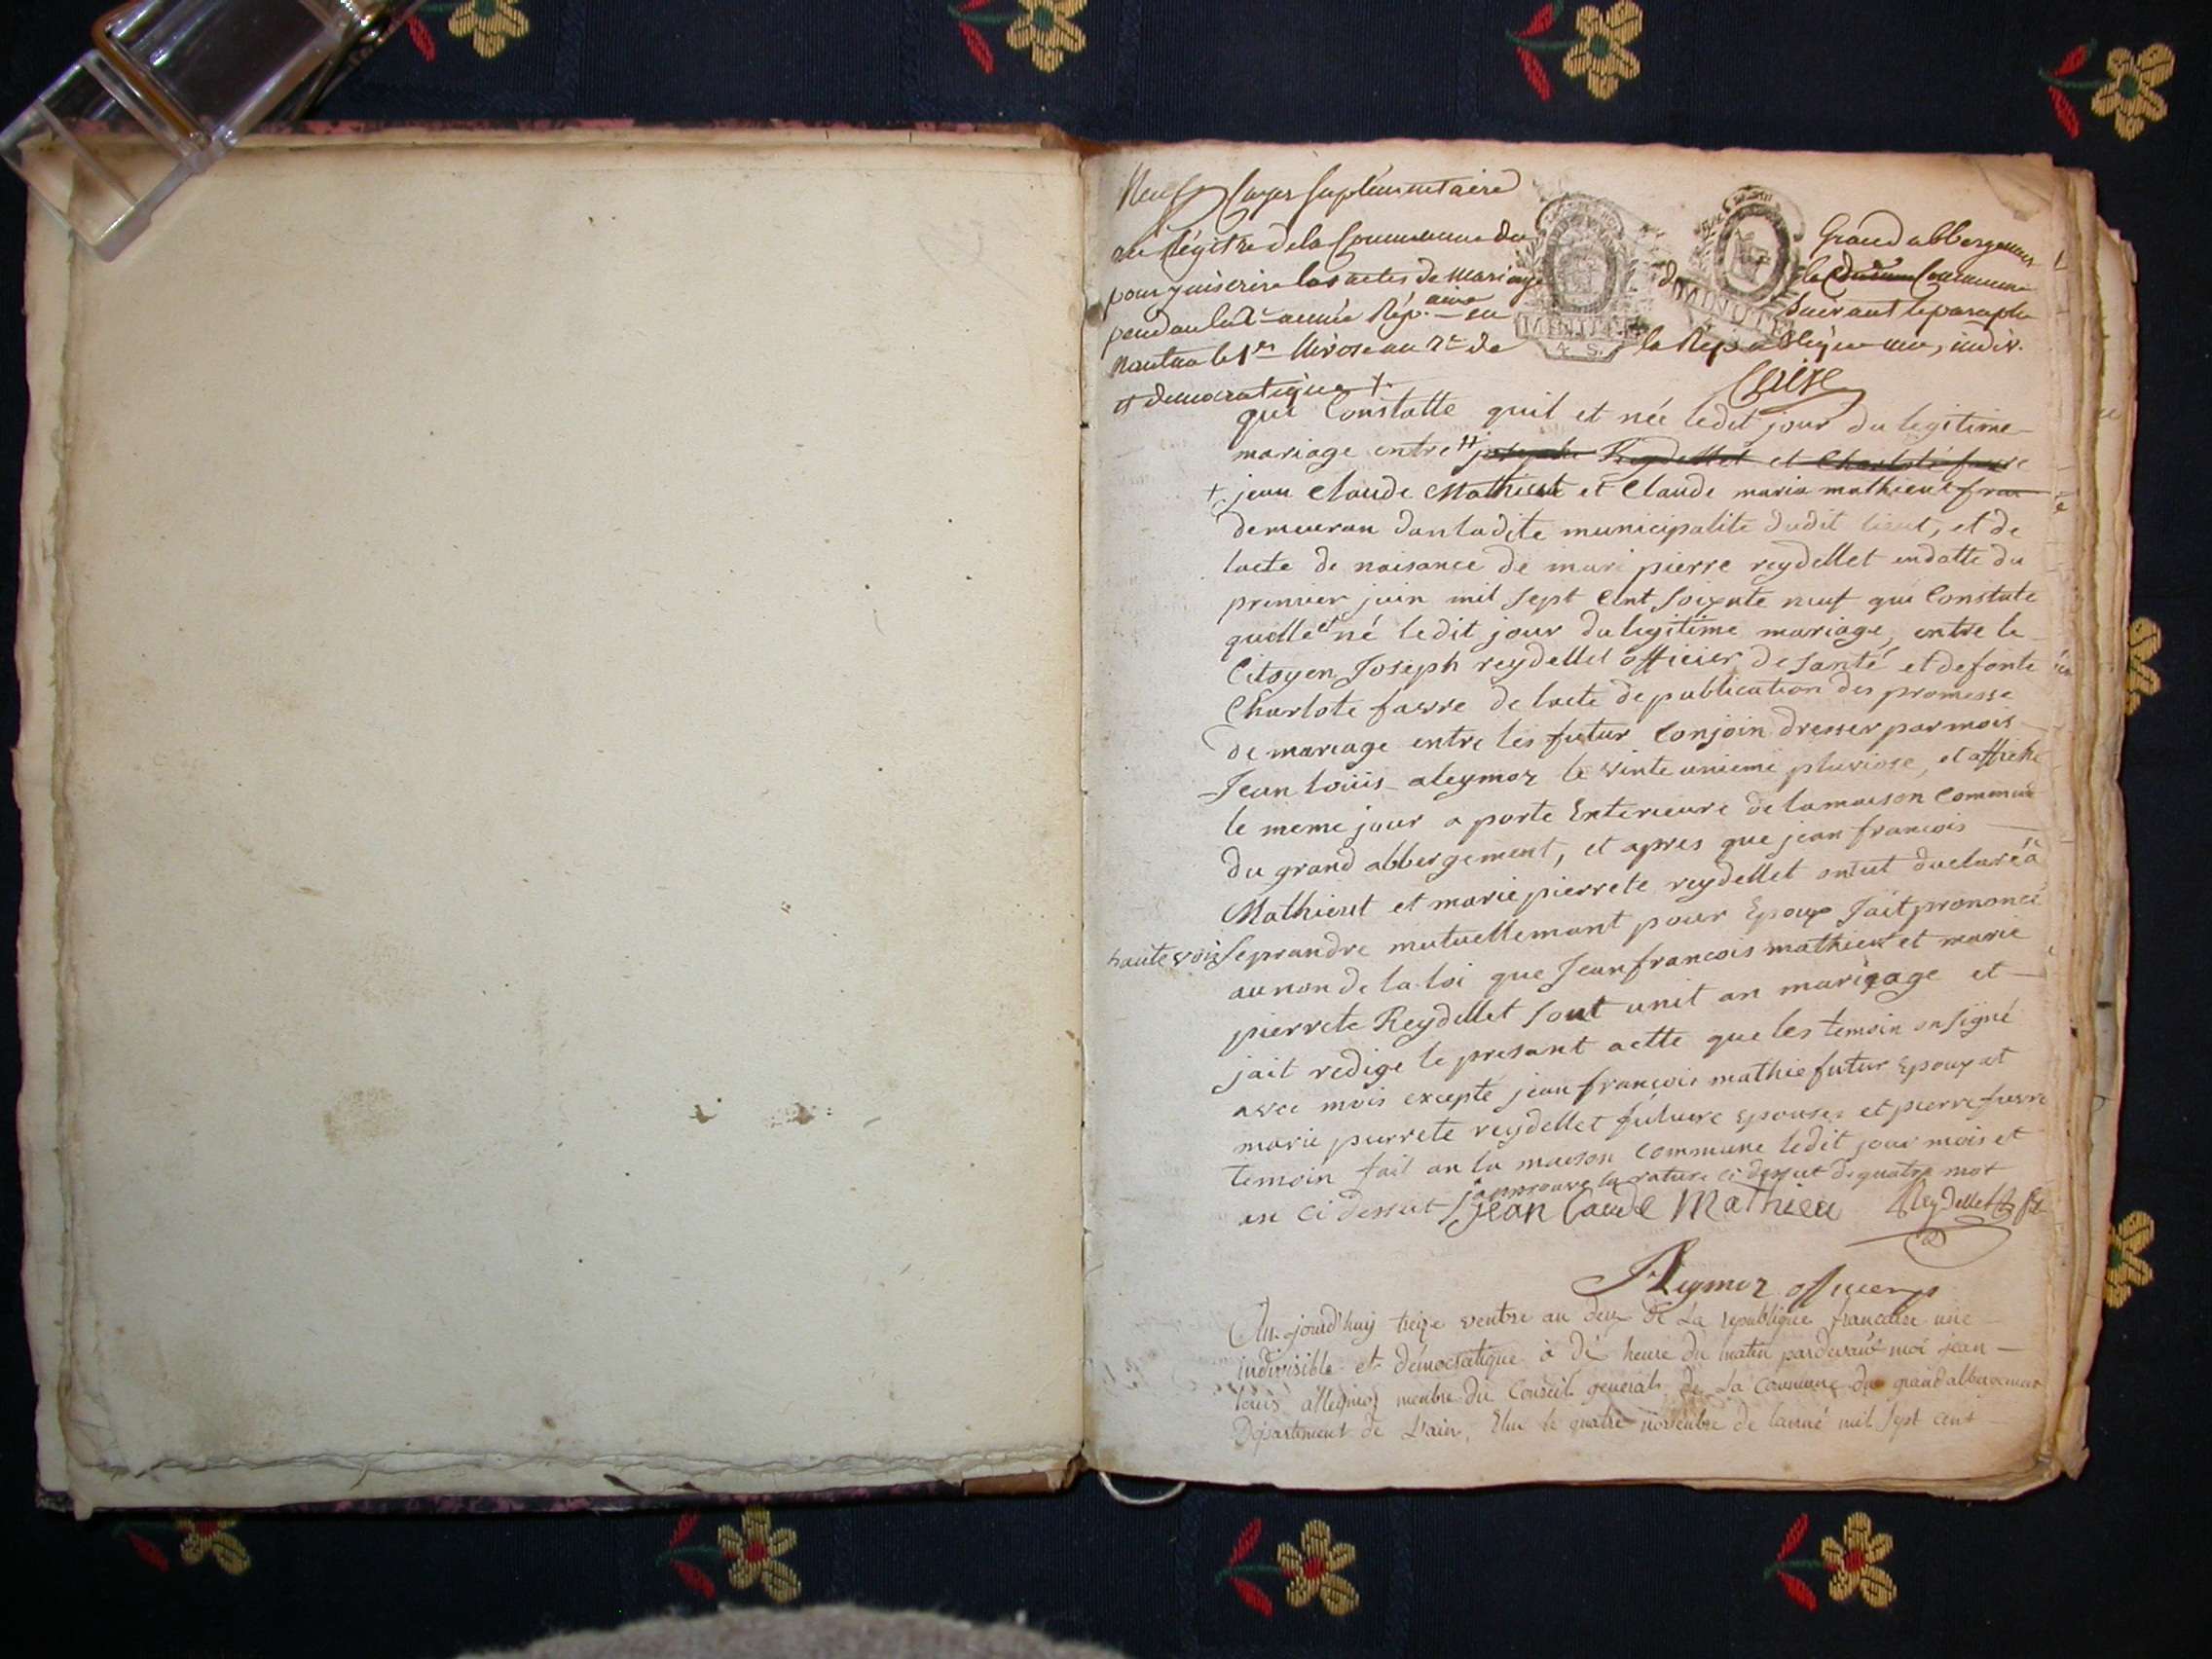 Neuf Cayer suplémentaire
au Régitre de la Commune du Grand abbergement
pour y inscrire les actes de Mariage de la Commune
pendant la 2e année Rép.aine en suivant le paraphe
Nantua le 1er Nivose an 2e de la République une, indiv.
et democratique
MINUTE
4. S.
MINUTE
que Constatte quil et née ledit jour du legitime
mariage entre joseph Reydellet et Charlote favre
+ jean Claude Mathieut et Claude maria mathieut
demeuran dan ladite municipalite dudit lieut, et de
lacte de naisance de mari pierre reydellet endatte du
premier juin mil sept Cent soixnte neuf qui Constate
quelle et né ledit jour du legitime mariage, entre le
Citoyen Joseph reydellet officier de santé et defonte
Charlote favre de lacte de publication des promesse
de mariage entre les futur Conjoin dresser par mois
Jean louiis aleymoz le vinte unieme pluviose, et affiché
le meme jour a porte Exterieure de la maison Commune
du grand abbergement, et apres que jean francois
Mathieut et marie pierrete reydellet on ut duclaré à
haute voix Seprandre mutuellemant pour Epoux Jait prononcé
aunon de la loi que Jean francois mathieut et marie
pierrete Reydellet sont unit an mariage et
jait redige le presant actte que les temoin on signé
avec mois excepté jean françois mathie futur Epoux et
marie pierrete reydellet futuere Epouse et pierre favre
temoin fait an la maison Commune ledit jour mois et
an ci dessut japprouve la rature ci dessut de quatre mot
jean Caude Mathieu Reydellet
Aleymoz officier
Au jourd'huy treize ventose an deux de La republique francaise une
indivisible et démocratique à dix heure du matin pardevant moi jean
louis alleymoz menbre du Conseil general de La Commune du grand albergement
Département de L'ain, Elu le quatre novenbre de lanné mil sept cent